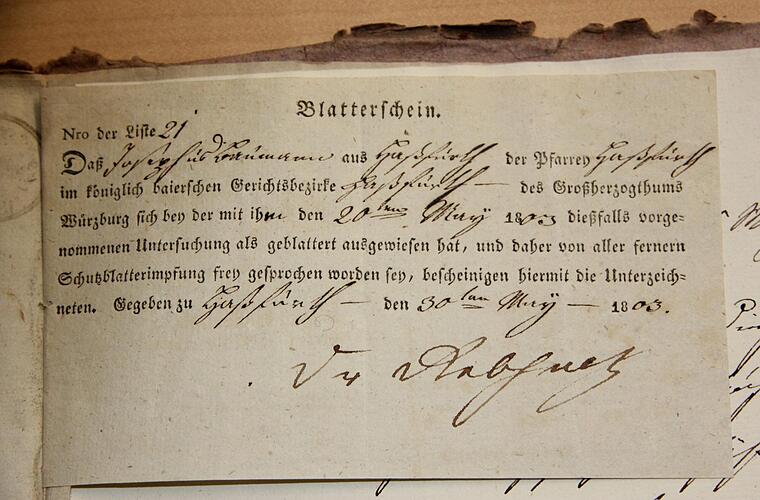 Blatterschein.
Nro der Liste 21
Daß Josephus Baumann aus Haßfurth der Pfarrey Haßfurth
im königlich baierschen Gerichtsbezirke Haßfurth — des Großherzogthums
Würzburg sich bey der mit ihm den 20ten May 1803 dießfalls vorge-
nommenen Untersuchung als geblattert ausgewiesen hat, und daher von aller fernern
Schutzblatterimpfung frey gesprochen worden sey, bescheinigen hiermit die Unterzeich-
neten. Gegeben zu Haßfurth — den 30ten May — 1803.
Dr